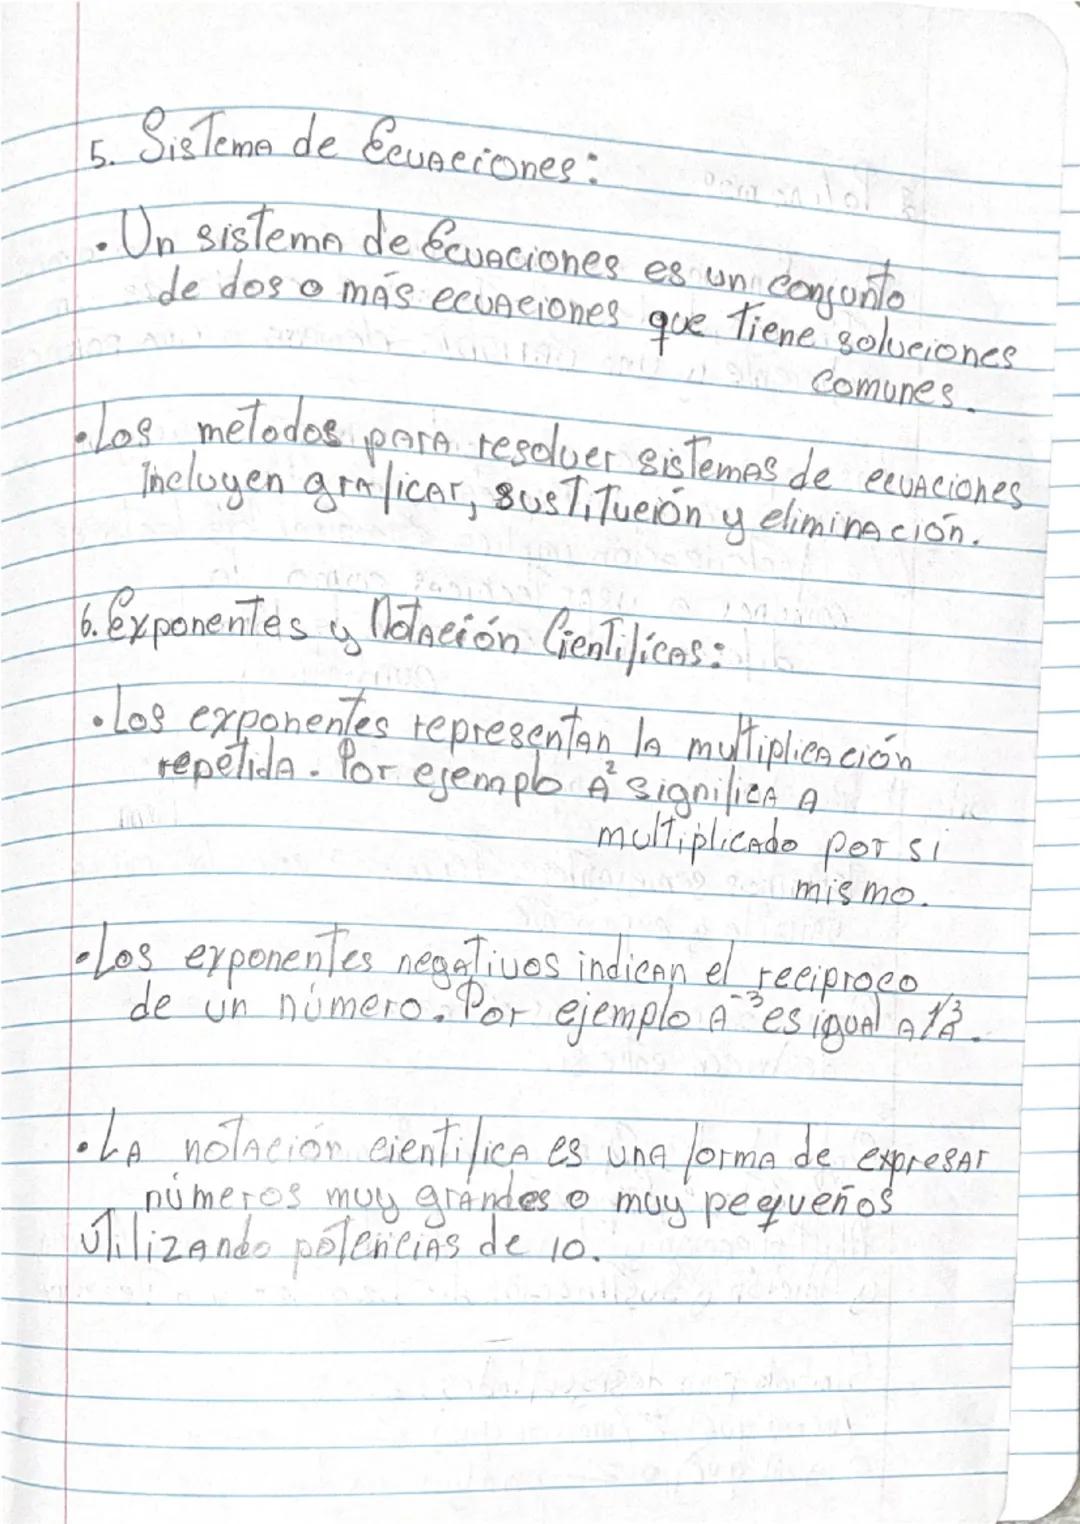 5. Sistema de Ecuaciones:
• Un sistema de Ecuaciones es un conjunto
de dos o más ecuaciones que tiene soluciones
comunes.
• Los métodos para resolver sistemas de ecuaciones
Incluyen graficar, sustitución y eliminación.
6. Exponentes y Notación Científicas:
• Los exponentes representan la multiplicación
repetida. Por ejemplo A² significa A
multiplicado por si
mismo.
• Los exponentes negativos indican el reciproco
de un número. Por ejemplo A⁻³ es igual A 1/A³.
• La notación científica es una forma de expresar
números muy grandes o muy pequeños
utilizando potencias de 10.